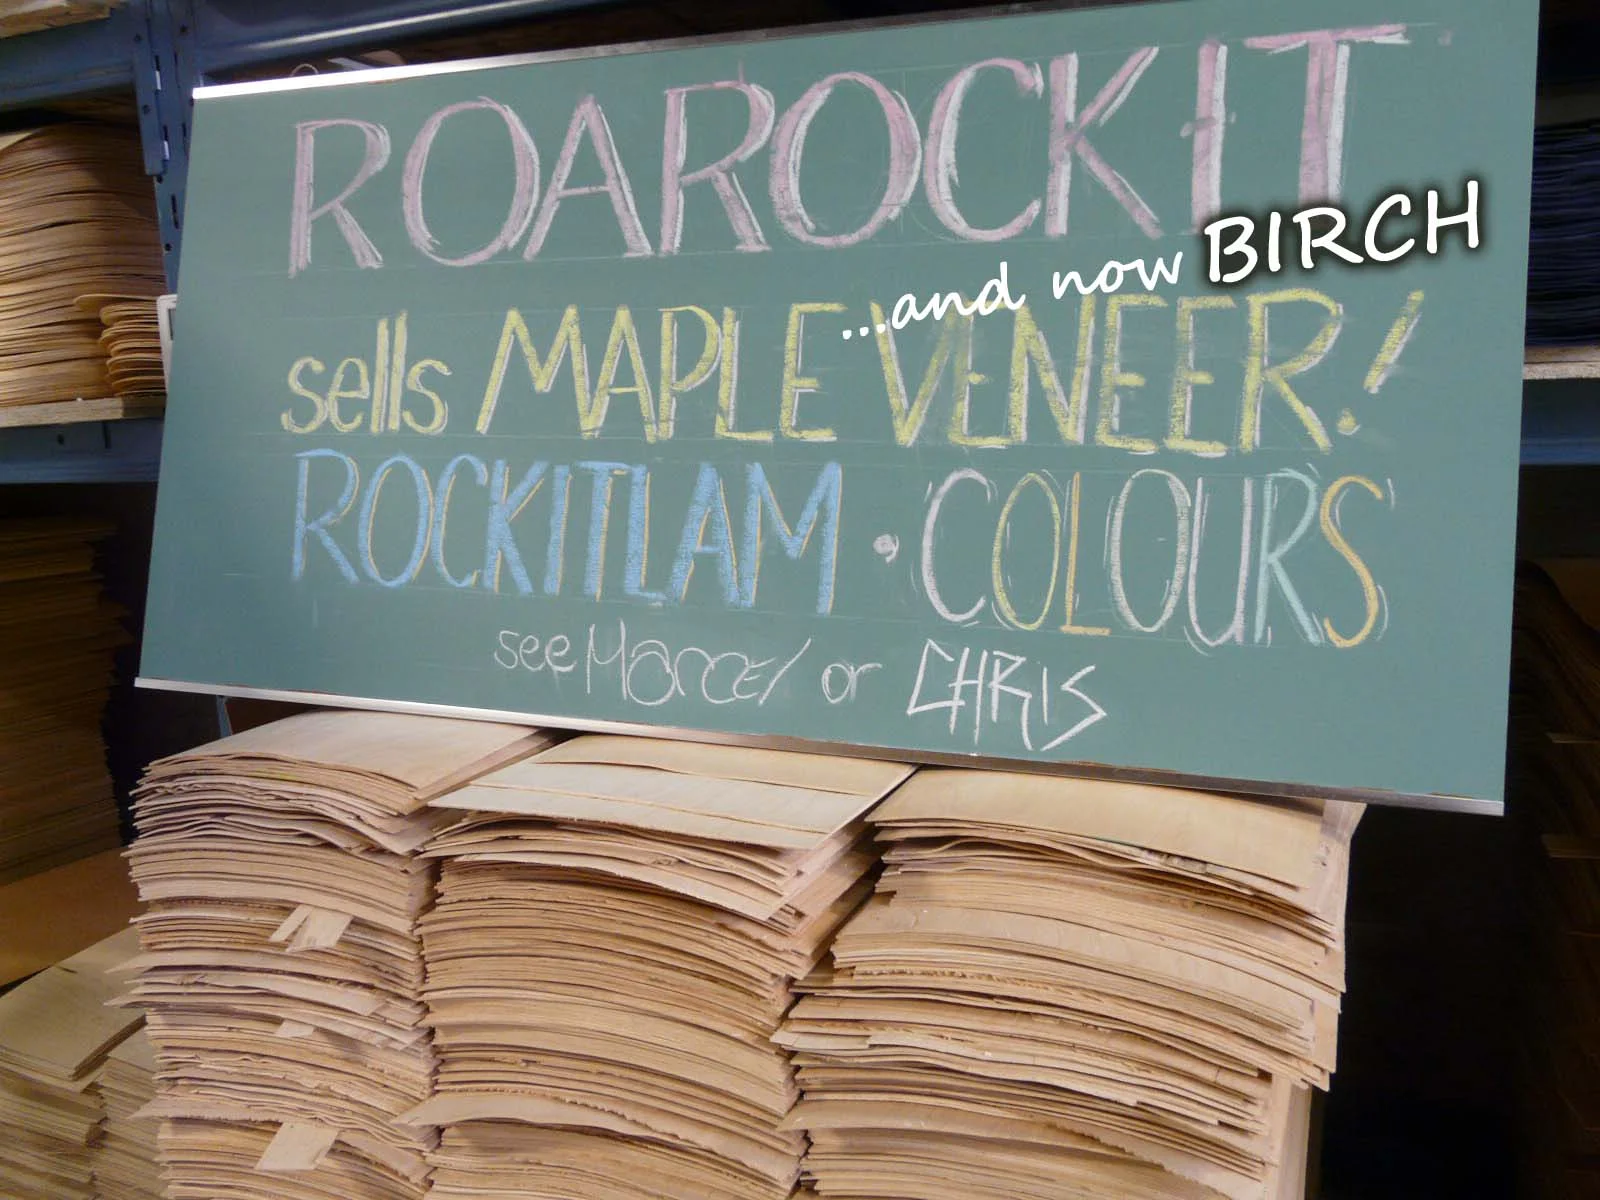 ROAROCKIT
...and now BIRCH
sells MAPLE VENEER!
ROCKITLAM • COLOURS
see Marcel or CHRIS